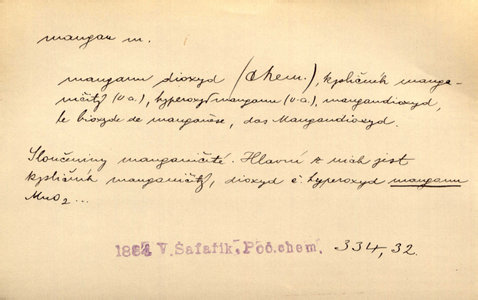 mangan m.
manganu dioxyd (chem.), kysličník manga-
ničitý (v.a.), hyperoxyd manganu (v.a.), mangandioxyd,
le bioxyde de manganèse, das Mangandioxyd.
Sloučeniny manganičité. Hlavní z nich jest
kysličník manganičitý, dioxyd č. hyperoxyd manganu
MnO2...
V. Šafařík, Poč. chem. 334, 32.